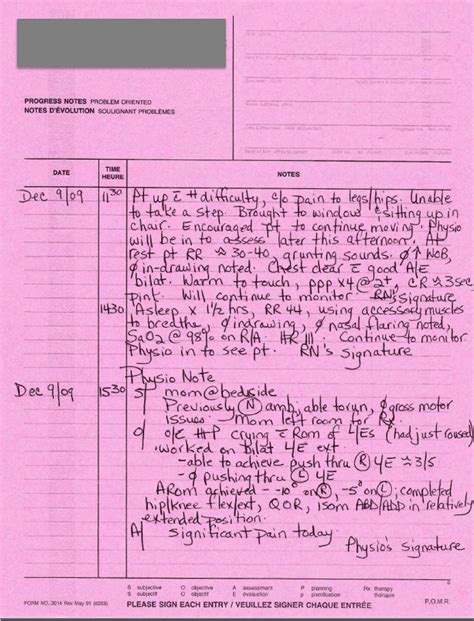 PROGRESS NOTES PROBLEM ORIENTED
NOTES D'ÉVOLUTION SOULIGNANT PROBLÈMES
DATE TIME HEURE NOTES
Dec 9/09 1130 Pt up c̄ ++ difficulty, c/o pain to legs/hips. Unable
to take a step. Brought to window & sitting up in
chair. Encouraged pt to continue moving. Physio
will be in to assess later this afternoon. At
rest pt RR ≈ 30-40, grunting sounds. ∅ ↑ WOB,
∅ in-drawing noted. Chest clear c̄ good A/E
bilat. Warm to touch, ppp x4 @ 2+, CR ≈ 3sec
pink. Will continue to monitor. RN's signature
1430 Asleep x 1½ hrs, RR 44, using accessory muscles
to breathe, ∅ indrawing, ∅ nasal flaring noted,
SaO2 @ 98% on R/A. HR 111. Continue to monitor
Physio in to see pt. RN's signature
Dec 9/09 1530 Physio Note
S/ mom@bedside
Previously Ⓝ amb, able to run, ∅ gross motor
issues. Mom left room for Rx.
O/ o/e ++P crying c̄ Rom of 4Es (had just roused)
Worked on Bilat 4E ext
-able to achieve push thru Ⓡ 4E ≈ 3/5
-∅ pushing thru Ⓛ 4E
ARom achieved - -10° on Ⓡ, -5° on Ⓛ; completed
hip/knee flex/ext, QOR, isom ABD/ADD in relatively
extended position.
A/ significant pain today.
Physio's signature
S subjective O objective A assessment P planning Rx therapy
S subjectif O objectif É évaluation P planification thérapie
FORM NO. 3614 Rev May 91 PLEASE SIGN EACH ENTRY / VEUILLEZ SIGNER CHAQUE ENTRÉE P.O.M.R.